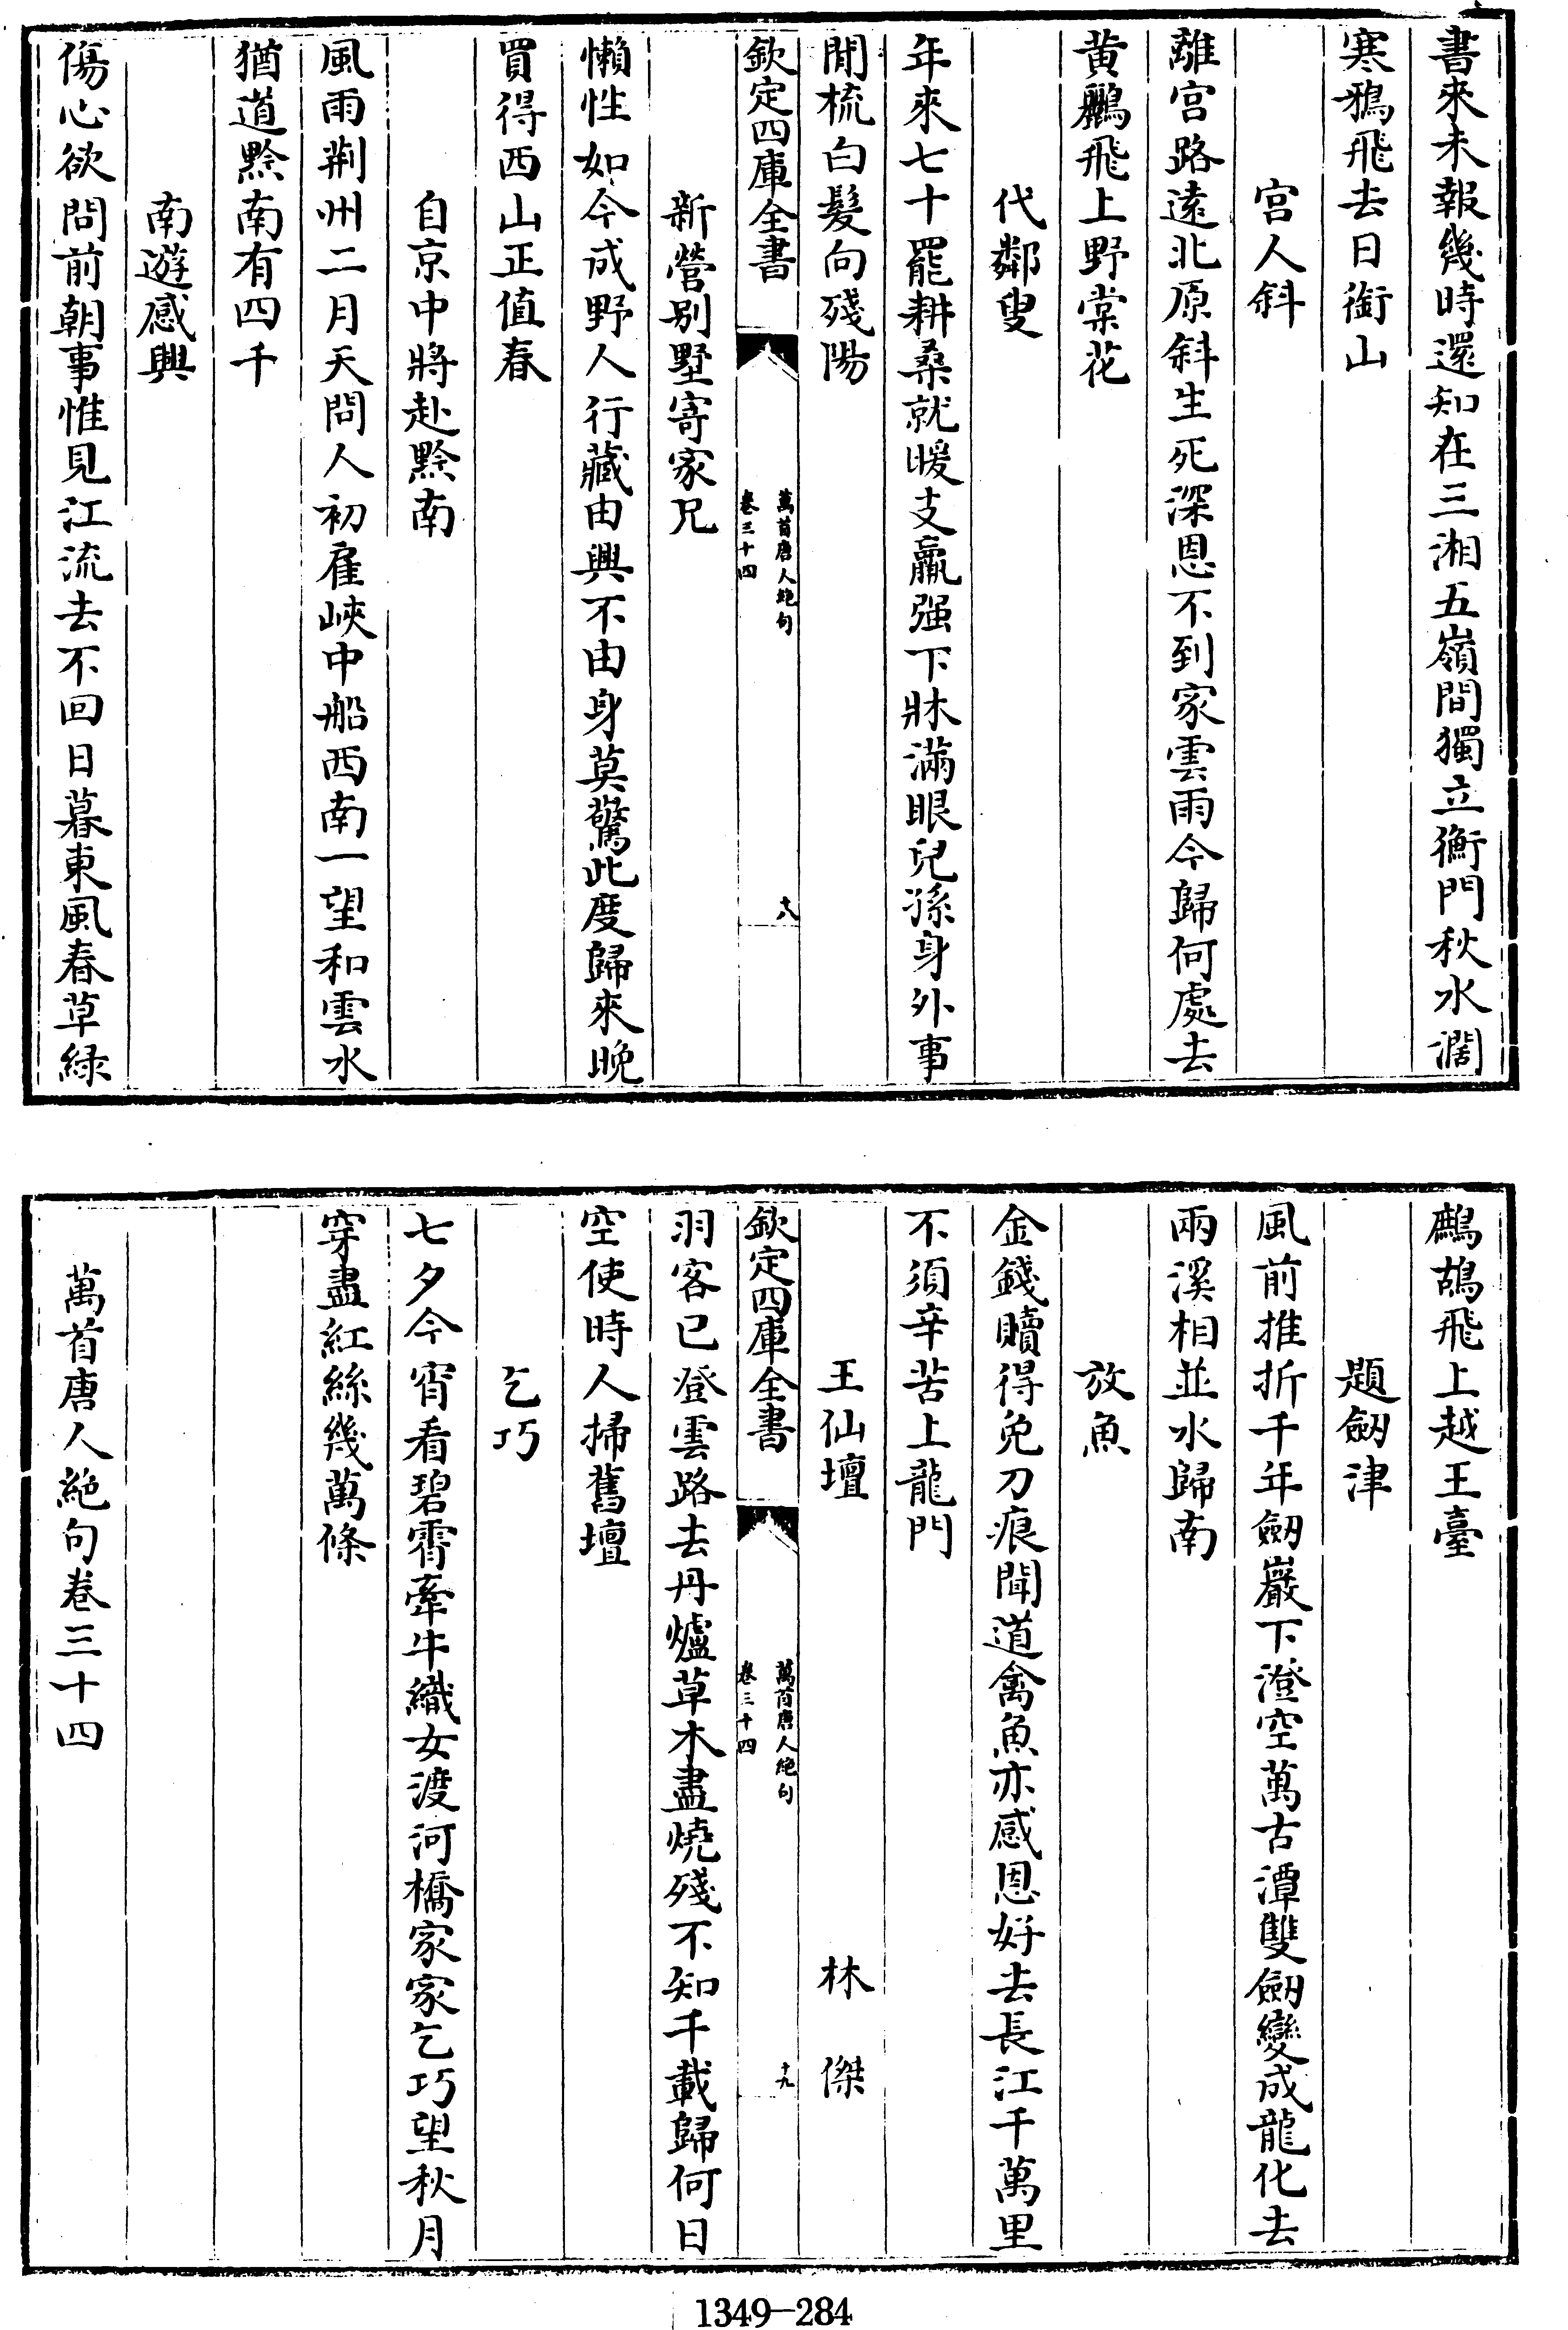 書來未報幾時還知在三湘五嶺間獨立衡門秋水濶
寒鴉飛去日銜山
宫人斜
離宫路逺北原斜生死深恩不到家雲雨今歸何處去
黄鸝飛上野棠花
代鄰叟
年來七十罷耕桑就暖支羸强下牀滿眼兒孫身外事
閒梳白髮向殘陽
欽定四庫全書
萬首唐人絶句
卷三十四
十八
新營别墅寄家兄
懶性如今成野人行藏由興不由身莫驚此度歸來晚
買得西山正值春
自京中將赴黔南
風雨荆州二月天問人初雇峽中船西南一望和雲水
猶道黔南有四千
南遊感興
傷心欲問前朝事惟見江流去不回日暮東風春草緑
鷓鴣飛上越王臺
題劒津
風前推折千年劒巖下澄空萬古潭雙劒變成龍化去
兩溪相並水歸南
放魚
金錢贖得免刀痕聞道禽魚亦感恩好去長江千萬里
不須辛苦上龍門
王仙壇　林傑
欽定四庫全書
萬首唐人絶句
卷三十四
十九
羽客已登雲路去丹爐草木盡燒殘不知千載歸何日
空使時人掃舊壇
乞巧
七夕今宵看碧霄牽牛織女渡河橋家家乞巧望秋月
穿盡紅絲幾萬條
萬首唐人絶句卷三十四
1349-284